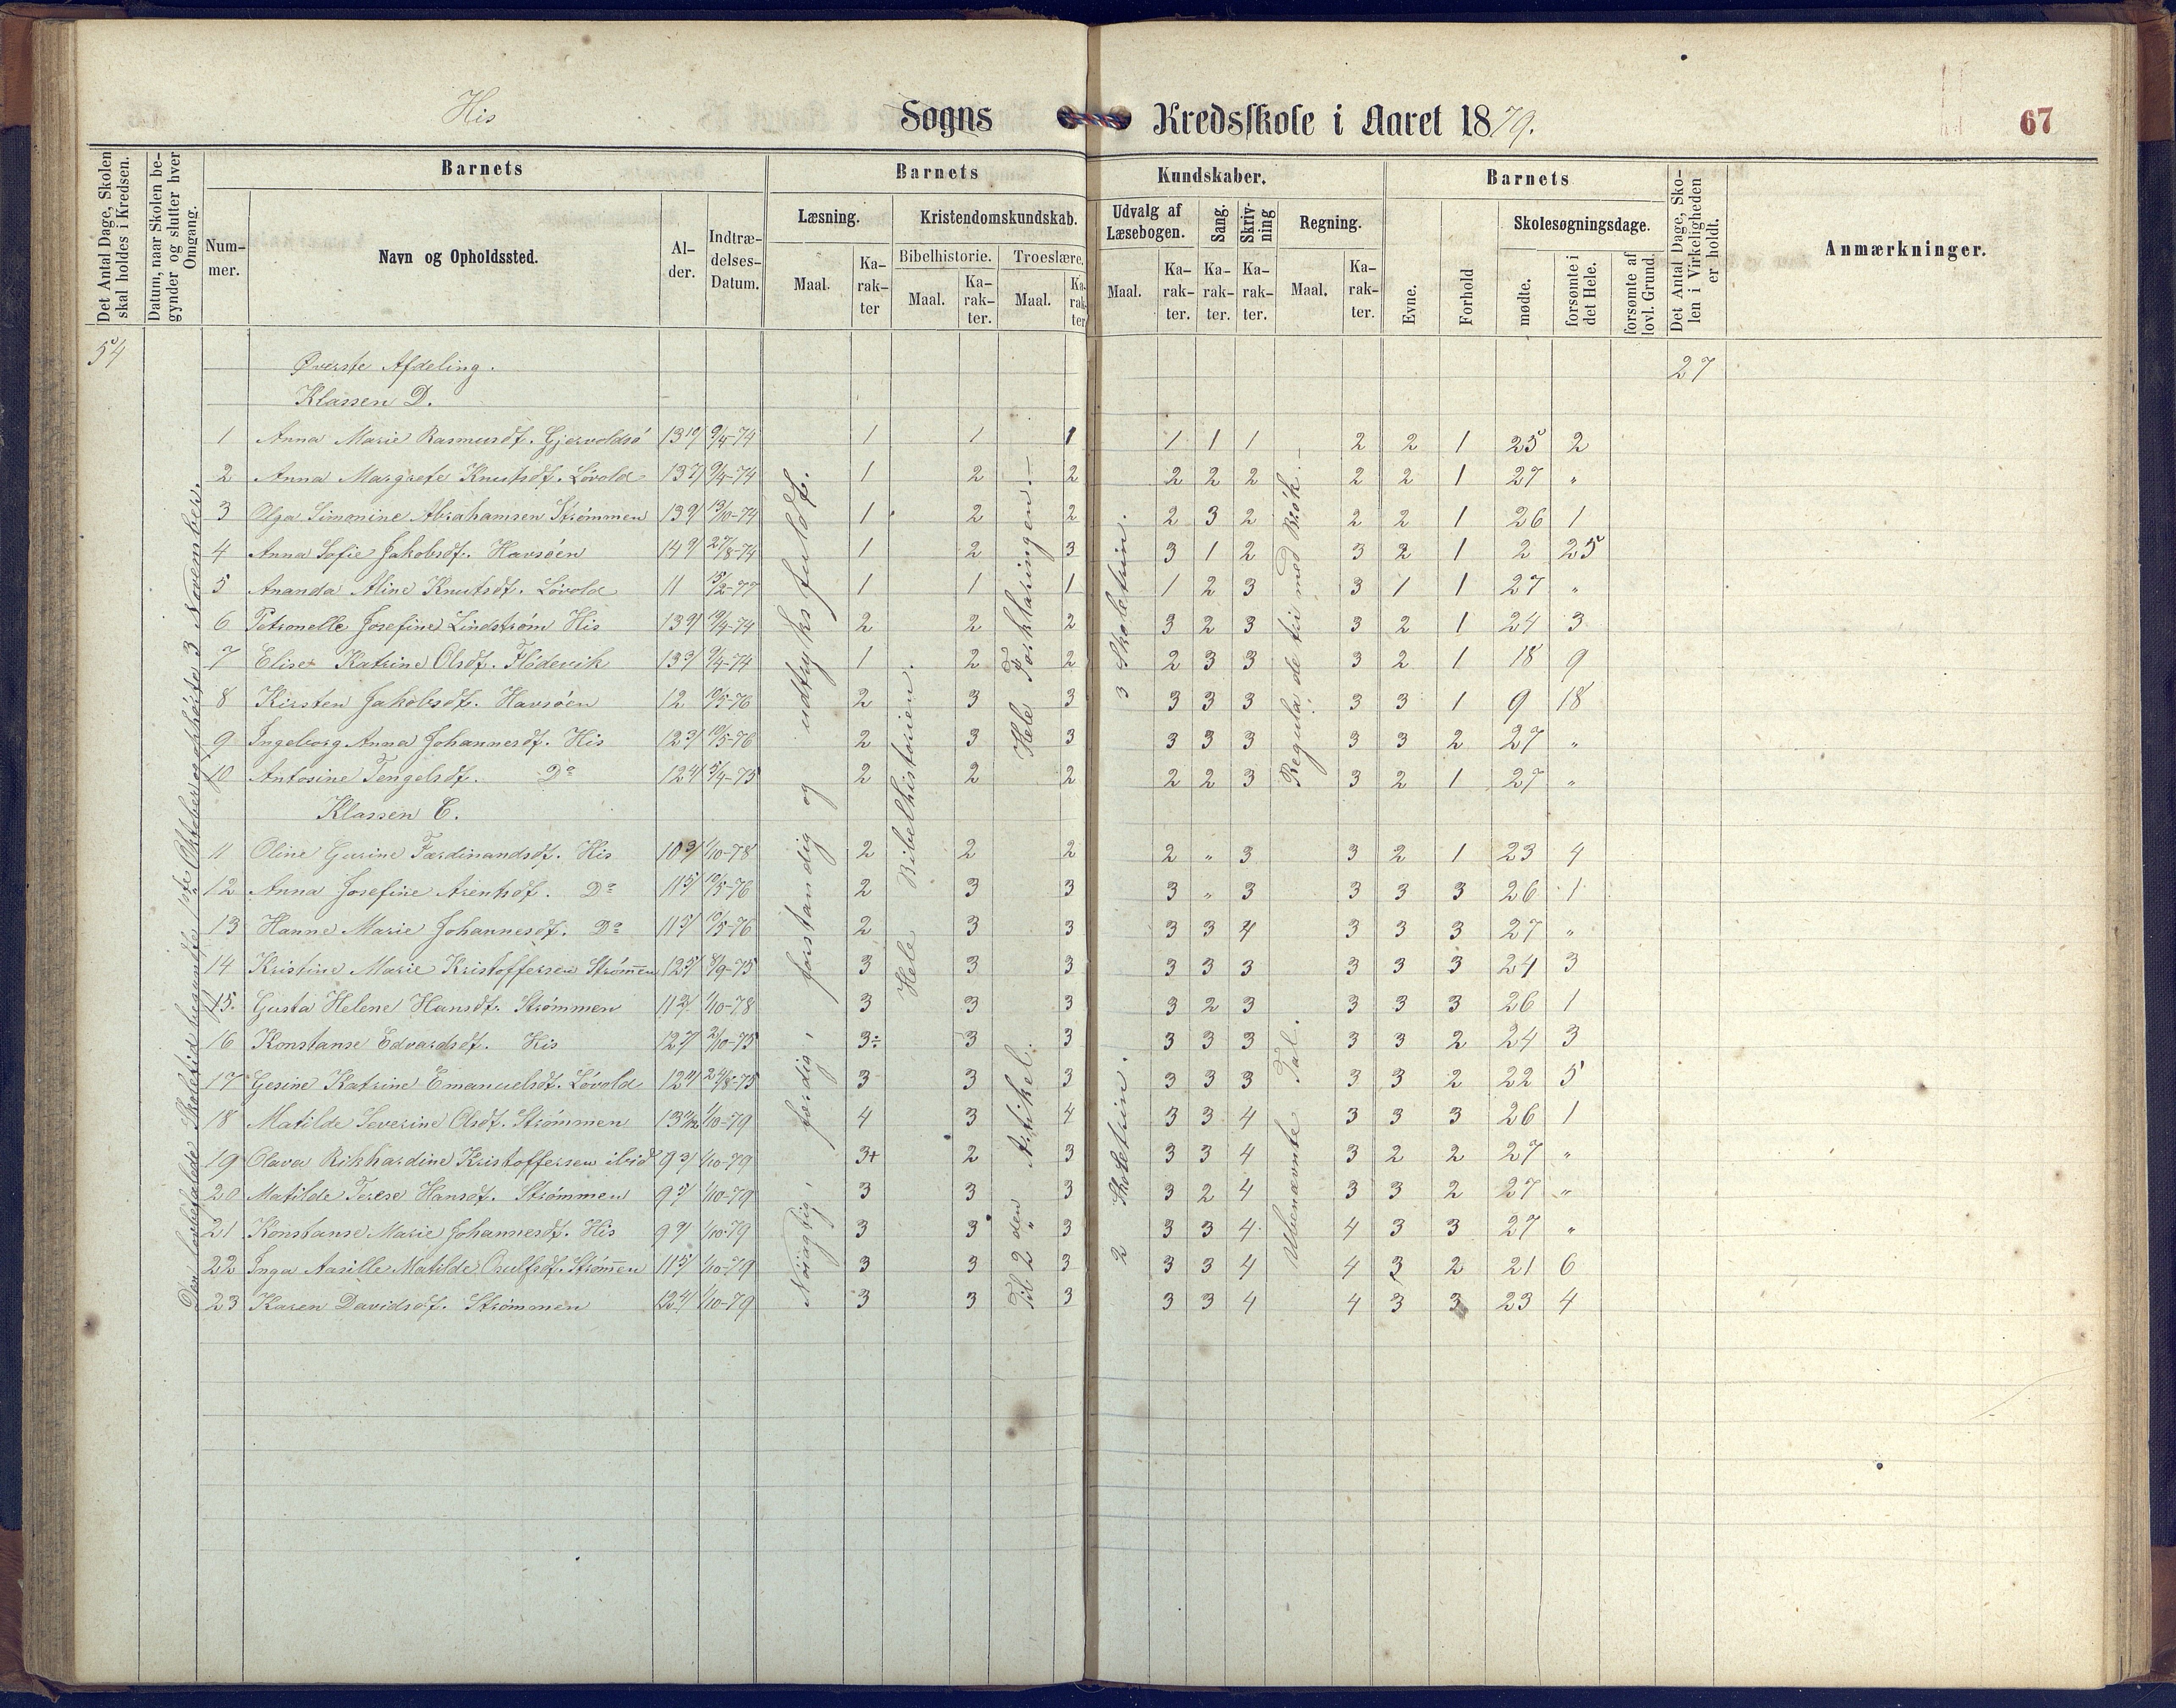 His Sogns Kredsskole i Aaret 1879. 67
Det Antal Dage, Skolen skal holdes i Kredsen.
Datum, naar Skolen begynder og slutter hver Omgang.
Barnets
Nummer.
Navn og Opholdssted.
Alder.
Indtrædelses-Datum.
Barnets Kundskaber.
Læsning.
Maal. Karakter
Kristendomskundskab.
Bibelhistorie. Troeslære.
Maal. Karakter. Maal. Karakter
Udvalg af Læsebogen.
Maal. Karakter.
Sang. Karakter.
Skrivning Karakter.
Regning.
Maal. Karakter.
Barnets
Evne. Forhold
Skolesøgningsdage.
mødte. forsømte i det Hele. forsømte af lovl. Grund.
Det Antal Dage, Skolen i Virkeligheden er holdt.
Anmærkninger.
54 27
Øverste Afdeling.
Klassen D.
1 Anna Marie Rasmusdt. Gjervoldsø 9/4-74 1 1 1 1 1 1 2 2 1 25 2
2 Anna Margrete Knutsdt. Løvold 9/4-74 1 2 2 2 2 2 2 2 1 27 "
3 Olga Simonine Abrahamsen Strømmen 13/10-74 1 2 2 2 3 2 2 2 1 26 1
4 Anna Sofie Jakobsdt. Havsøen 27/8-74 1 2 3 3 1 2 3 2 1 2 25
5 Ananda Aline Knutsdt. Løvold 11 15/2-77 1 1 1 1 2 3 3 1 1 27 "
6 Petronelle Josefine Lindstrøm His 2 2 2 3 2 3 3 2 1 24 3
7 Elise Katrine Olsdt. Flødevik 9/4-74 1 2 2 2 3 3 3 2 1 18 9
8 Kirsten Jakobsdt. Havsøen 12 10/5-76 2 3 3 3 3 3 3 3 1 9 18
9 Ingeborg Anna Johannesdt. His 10/5-76 2 3 3 3 3 3 3 3 2 27 "
10 Antosine Tengelsdt. Do 5/4-75 2 2 2 2 2 3 3 2 1 27 "
Klassen C.
11 Oline Gurine Færdinandsdt. His 1/10-78 2 2 2 2 " 3 3 2 1 23 4
12 Anna Josefine Arentsdt. Do 10/5-76 2 3 3 3 " 3 3 3 3 26 1
13 Hanne Marie Johannesdt. Do 10/5-76 2 3 3 3 3 4 3 3 3 27 "
14 Kristine Marie Kristoffersen Strømmen 8/9-75 3 3 3 3 3 3 3 3 3 24 3
15. Gusta Helene Hansdt. Strømmen 1/10-78 3 3 3 3 2 3 3 3 3 26 1
16 Konstanse Edvardsdt. His 2/10-75 3÷ 3 3 3 3 3 3 3 2 24 3
17 Gesine Katrine Emanuelsdt. Løvold 24/8-75 3 3 3 3 3 3 3 3 2 22 5
18 Matilde Severine Olsdt. Strømmen 1/10-79 4 3 4 3 3 4 3 3 3 26 1
19 Olava Rikhardine Kristoffersen ibid 1/10-79 3+ 2 3 3 3 4 3 2 2 27 "
20 Matilde Terese Hansdt. Strømmen 1/10-79 3 3 3 3 2 4 3 3 2 27 "
21 Konstanse Marie Johannesdt. His 1/10-79 3 3 3 3 3 4 4 3 3 27 "
22 Inga Matilde Strømmen 1/10-79 3 3 3 3 3 4 4 3 2 21 6
23 Karen Davidsdt. Strømmen 1/10-79 3 3 3 3 3 4 4 3 3 23 4
Den lovbefalede Skoletid begyndte 1ste Oktober og ophørte 3 November.
Nøiagtig, færdig, forstandig og udtryksfuldt.
Hele Bibelhistorien.
Hele Forklaringen.
Til 2 den Artikel.
3 Skoletrin.
2 Skoletrin.
Regula de tri med Brøk.
Ubenævnte Tal.